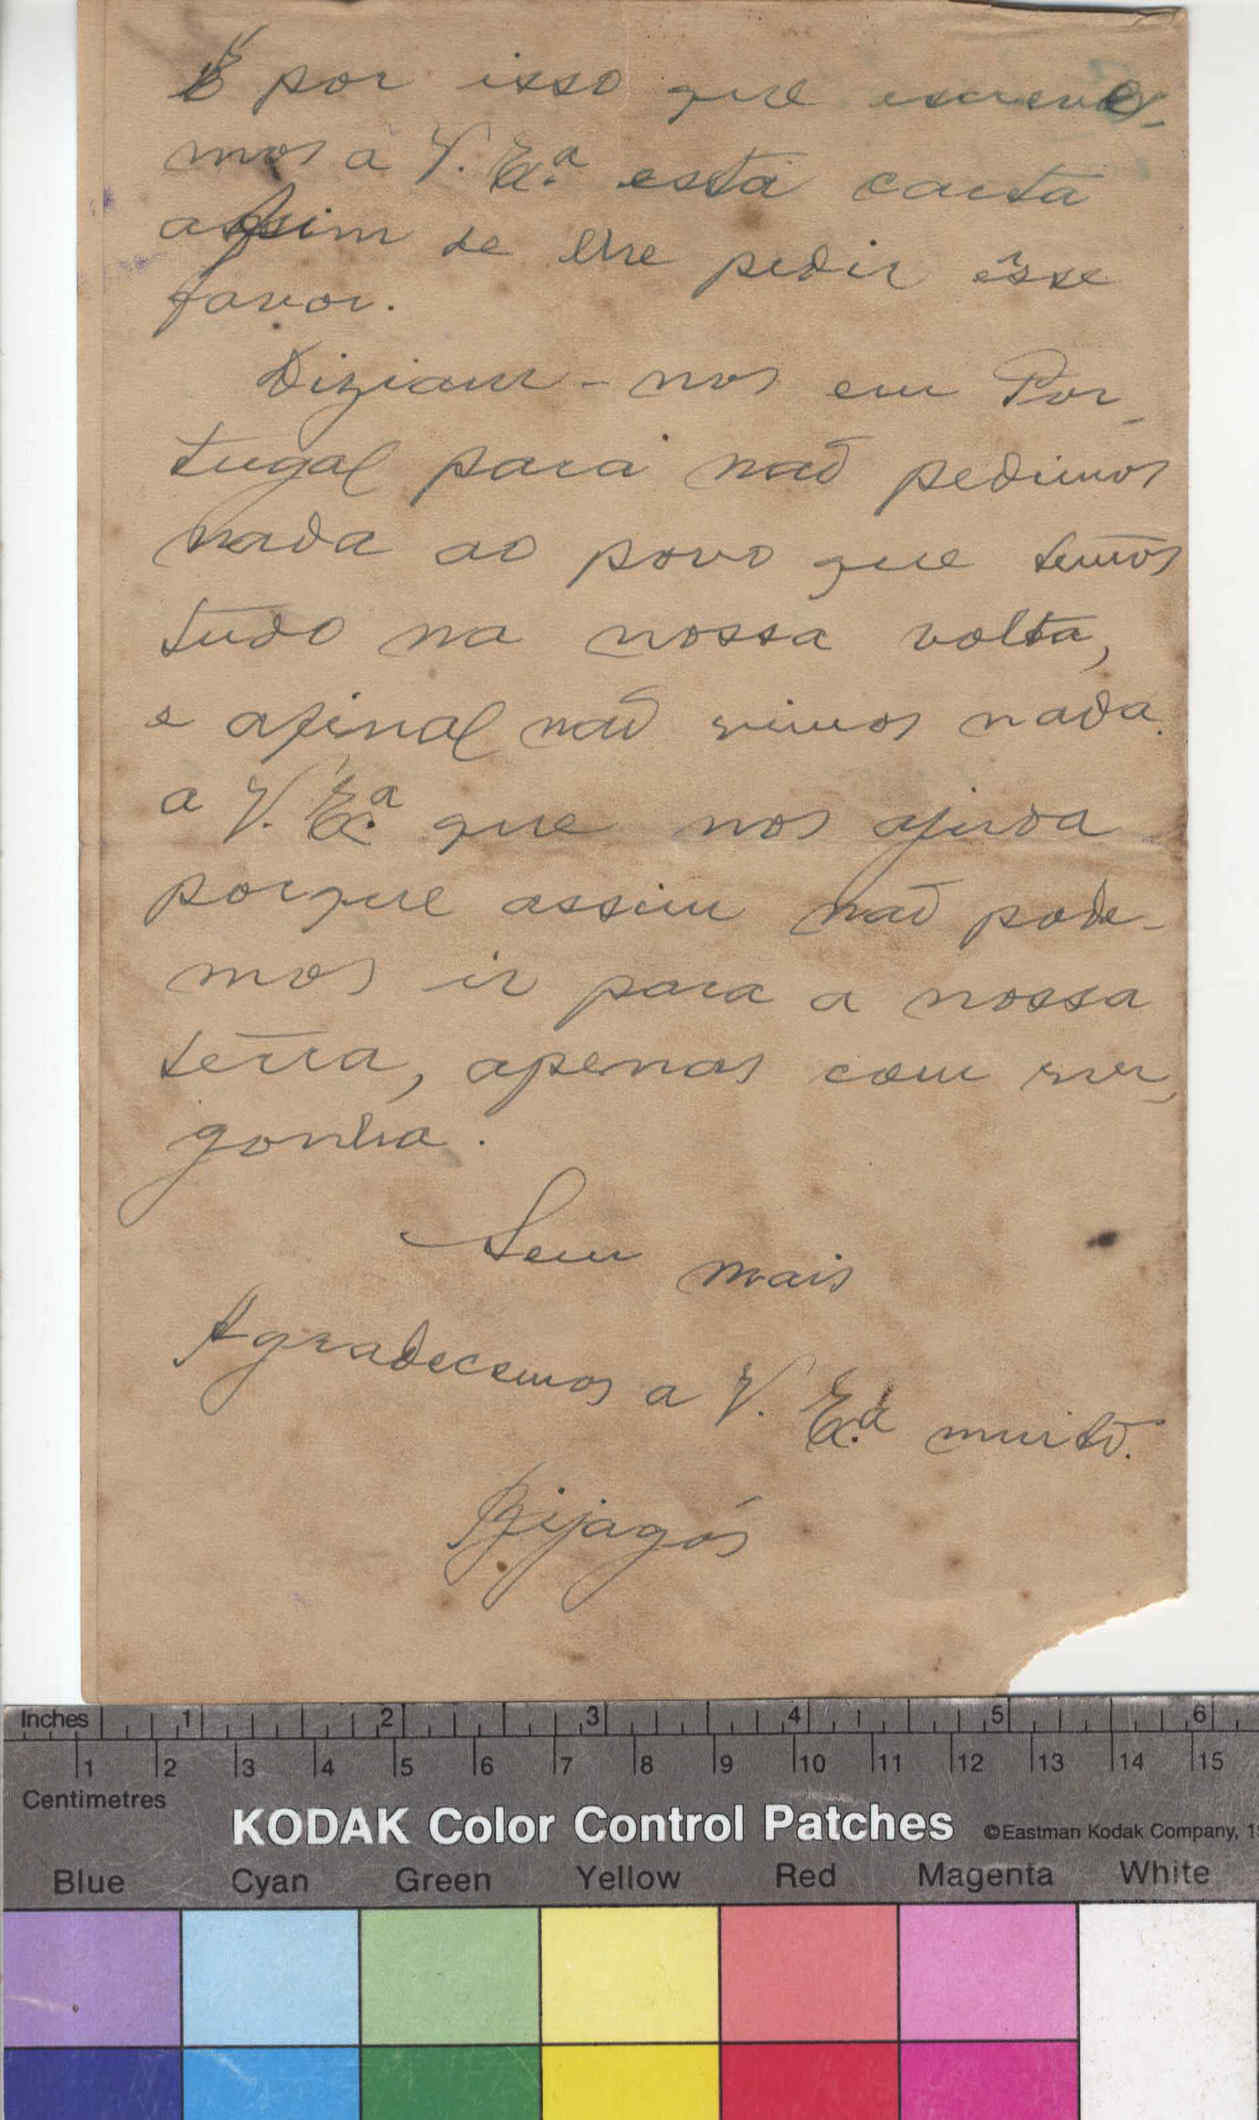 É por isso que escreve-
mos a V. Exª. esta carta
assim de lhe pedir êsse
favor.
Diziam-nos em Por-
tugal para naõ pedimos
nada ao povo que temos
tudo na nossa volta,
e afinal naõ vimos nada.
a V. Exª. que nos ajuda
porque assim naõ pode-
mos ir para a nossa
terra, apenas com ver-
gonha.
Sem mais
Agradecemos a V. Exª. muito.
Bijagós
Inches 1 2 3 4 5 6
1 2 3 4 5 6 7 8 9 10 11 12 13 14 15
Centimetres
KODAK Color Control Patches ©Eastman Kodak Company,
Blue Cyan Green Yellow Red Magenta White